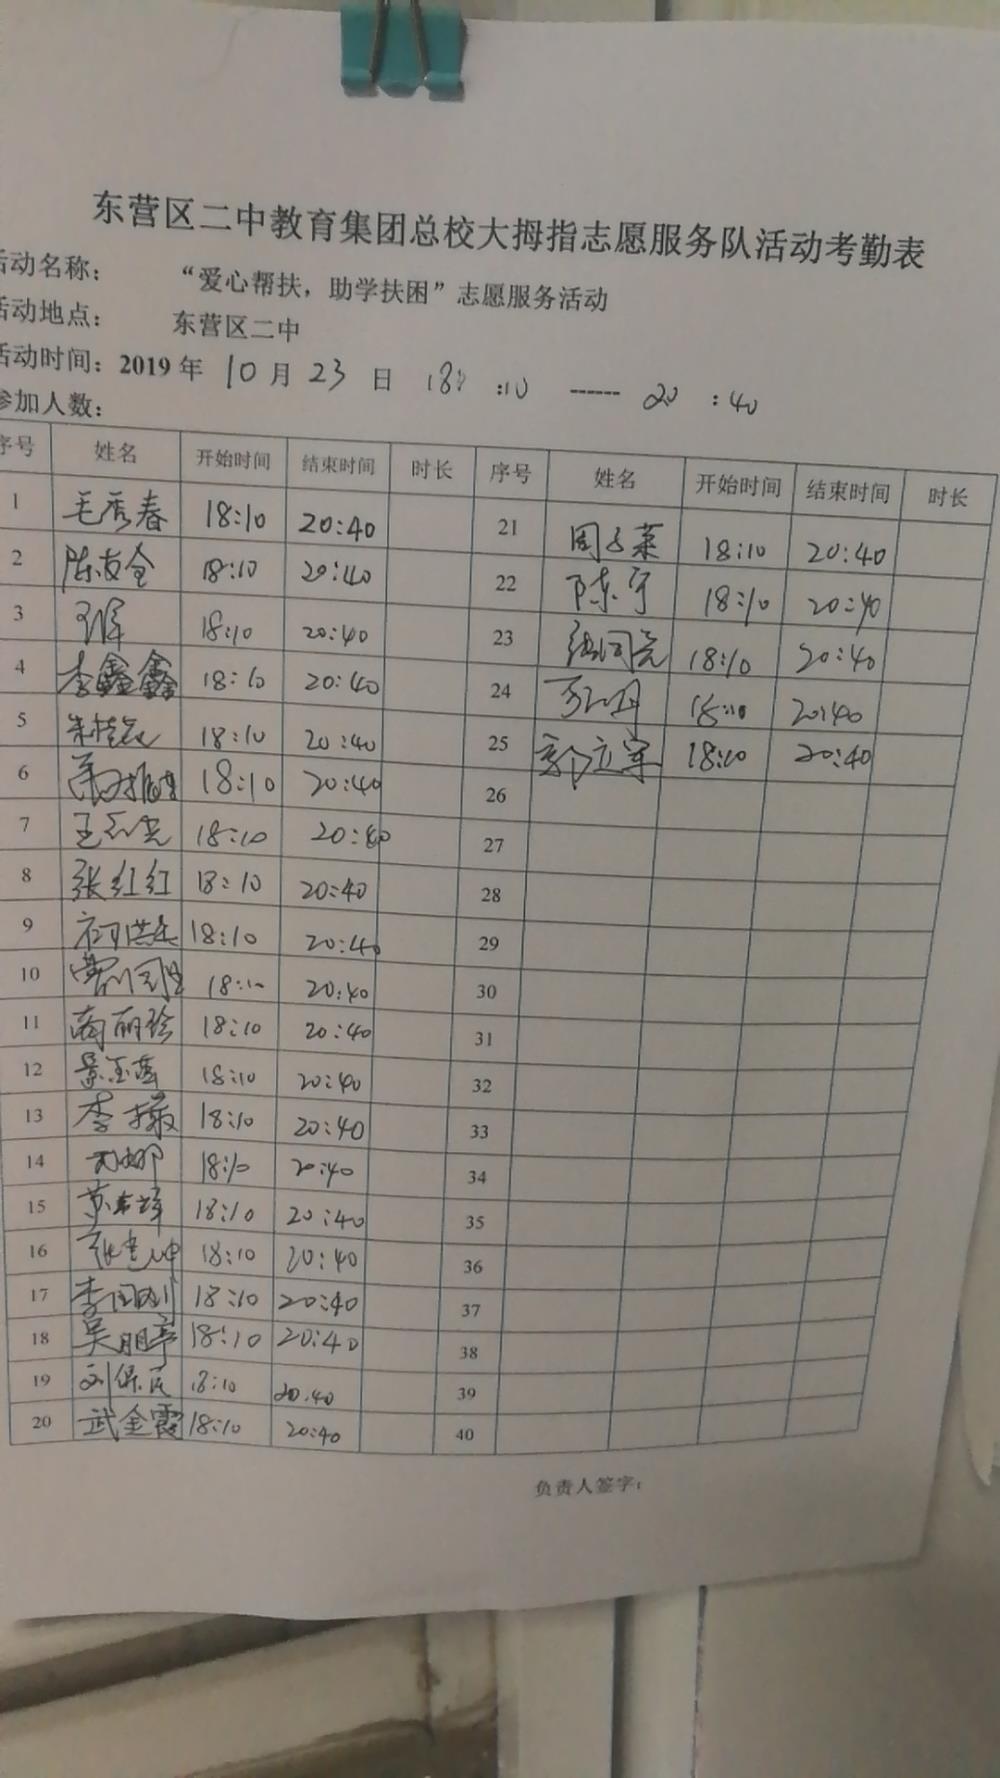 东营区二中教育集团总校大拇指志愿服务队活动考勤表
活动名称： “爱心帮扶，助学扶困”志愿服务活动
活动地点： 东营区二中
活动时间：2019 年 10 月 23 日 18 :10 ------ 20 :40
参加人数：
序号 姓名 开始时间 结束时间 时长 序号 姓名 开始时间 结束时间 时长
1 毛秀春 18:10 20:40 21 18:10 20:40
2 陈友全 18:10 20:40 22 陈宁 18:10 20:40
3 18:10 20:40 23 18:10 20:40
4 李鑫鑫 18:10 20:40 24 18:10 20:40
5 18:10 20:40 25 郭立军 18:10 20:40
6 18:10 20:40 26
7 18:10 20:40 27
8 张红红 18:10 20:40 28
9 18:10 20:40 29
10 18:10 20:40 30
11 18:10 20:40 31
12 18:10 20:40 32
13 18:10 20:40 33
14 18:10 20:40 34
15 18:10 20:40 35
16 18:10 20:40 36
17 李国刚 18:10 20:40 37
18 18:10 20:40 38
19 刘保民 18:10 20:40 39
20 武金霞 18:10 20:40 40
负责人签字：